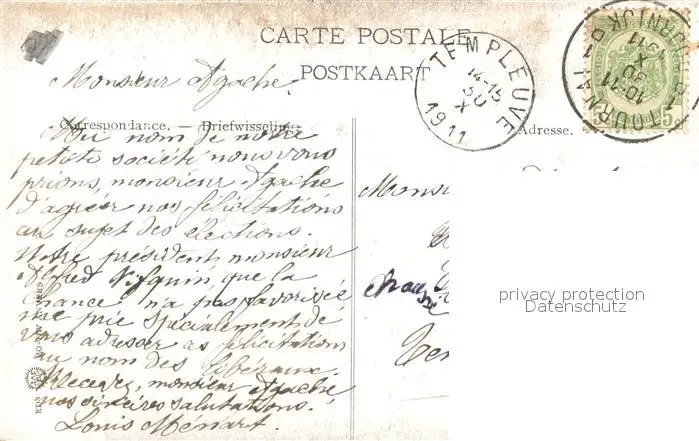 CARTE POSTALE
POSTKAART
Monsieur Agache.
Correspondance. — Briefwisseling.
Au nom de notre
petite société nous vous
prions, monsieur Agache
d'agréer nos félicitations
au sujet des élections.
Notre président monsieur
Alfred Vifquin, que la
chance n'a pas favorisée
me prie spécialement de
vous adresser ces félicitations
au nom des libéraux.
Recevez, monsieur Agache
nos sincères salutations.
Louis Ménart.
TEMPLEUVE
14-15
30
X
1911
TOURNAI
DOORNIJK
10-11
30
X
1911
5c
Adresse.
Mons
chaussée
privacy protection
Datenschutz